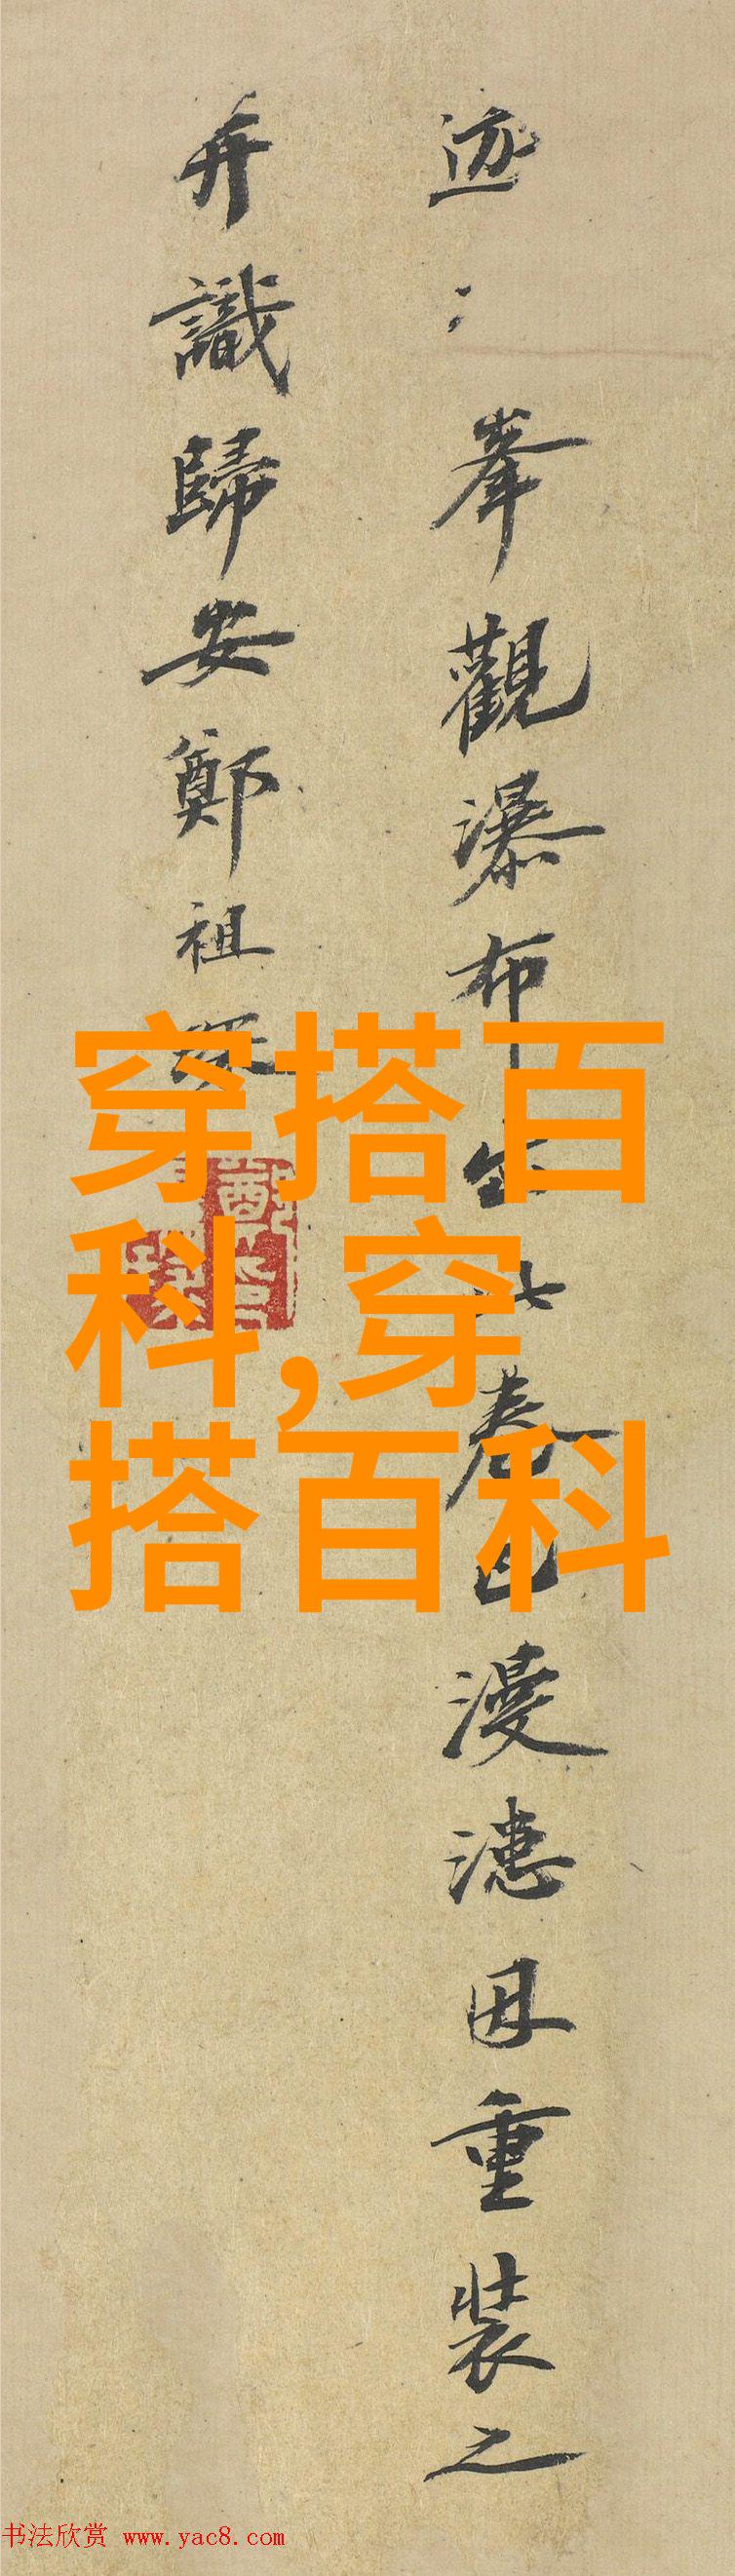 迹〻峯觀瀑布
卷已漫漶因重裝之
并識歸安鄭祖
穿搭百
科,穿
搭百科
书法欣赏 www.yac8.com